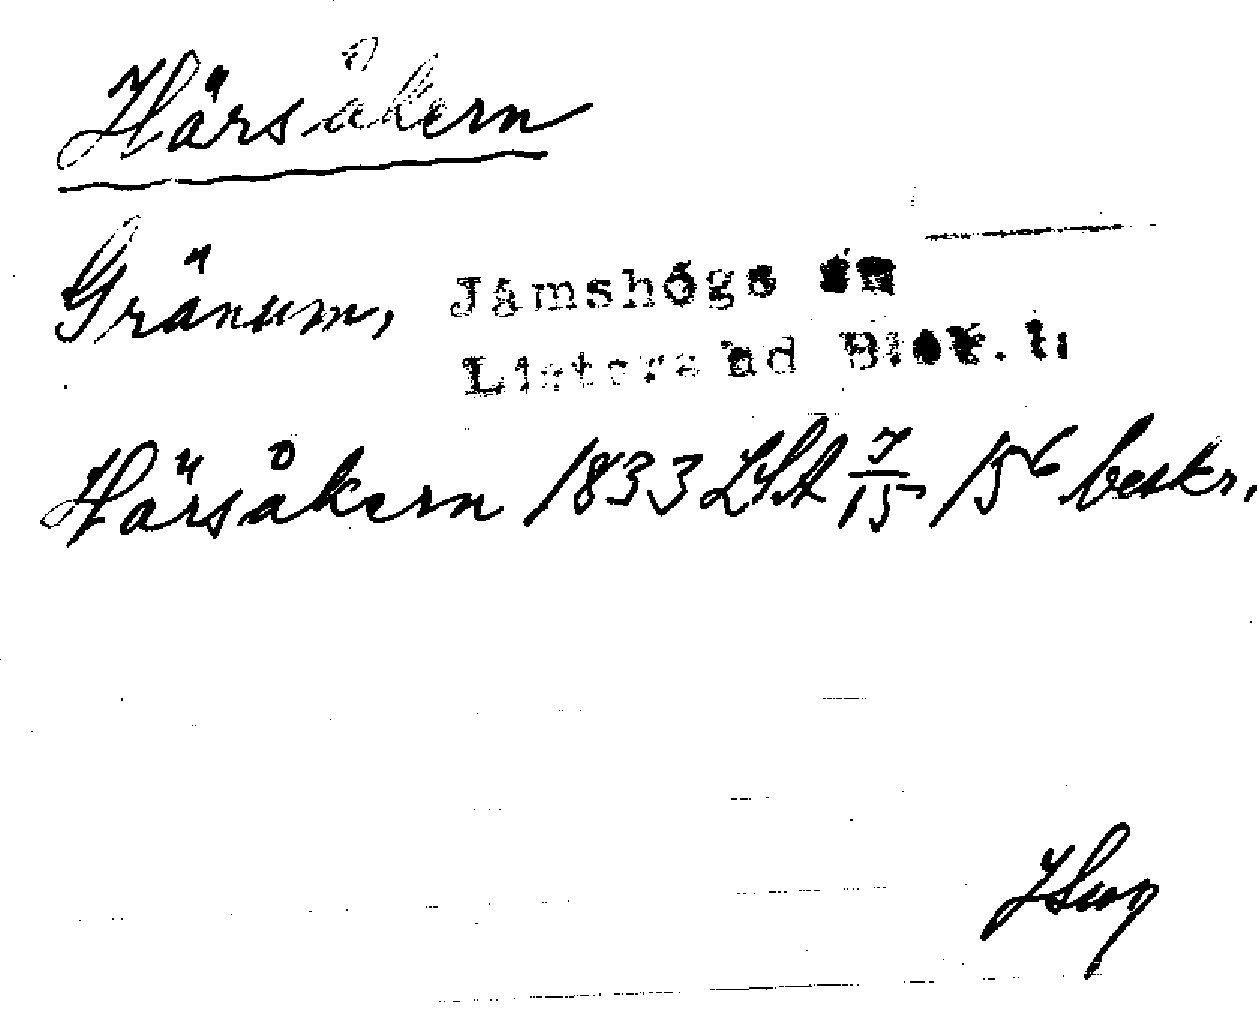 Härsåkern
Gränum, Jämshögs sn
Listers hd Blek. l.
Härsåkern 1833 LSA 7/15 156 beskr.